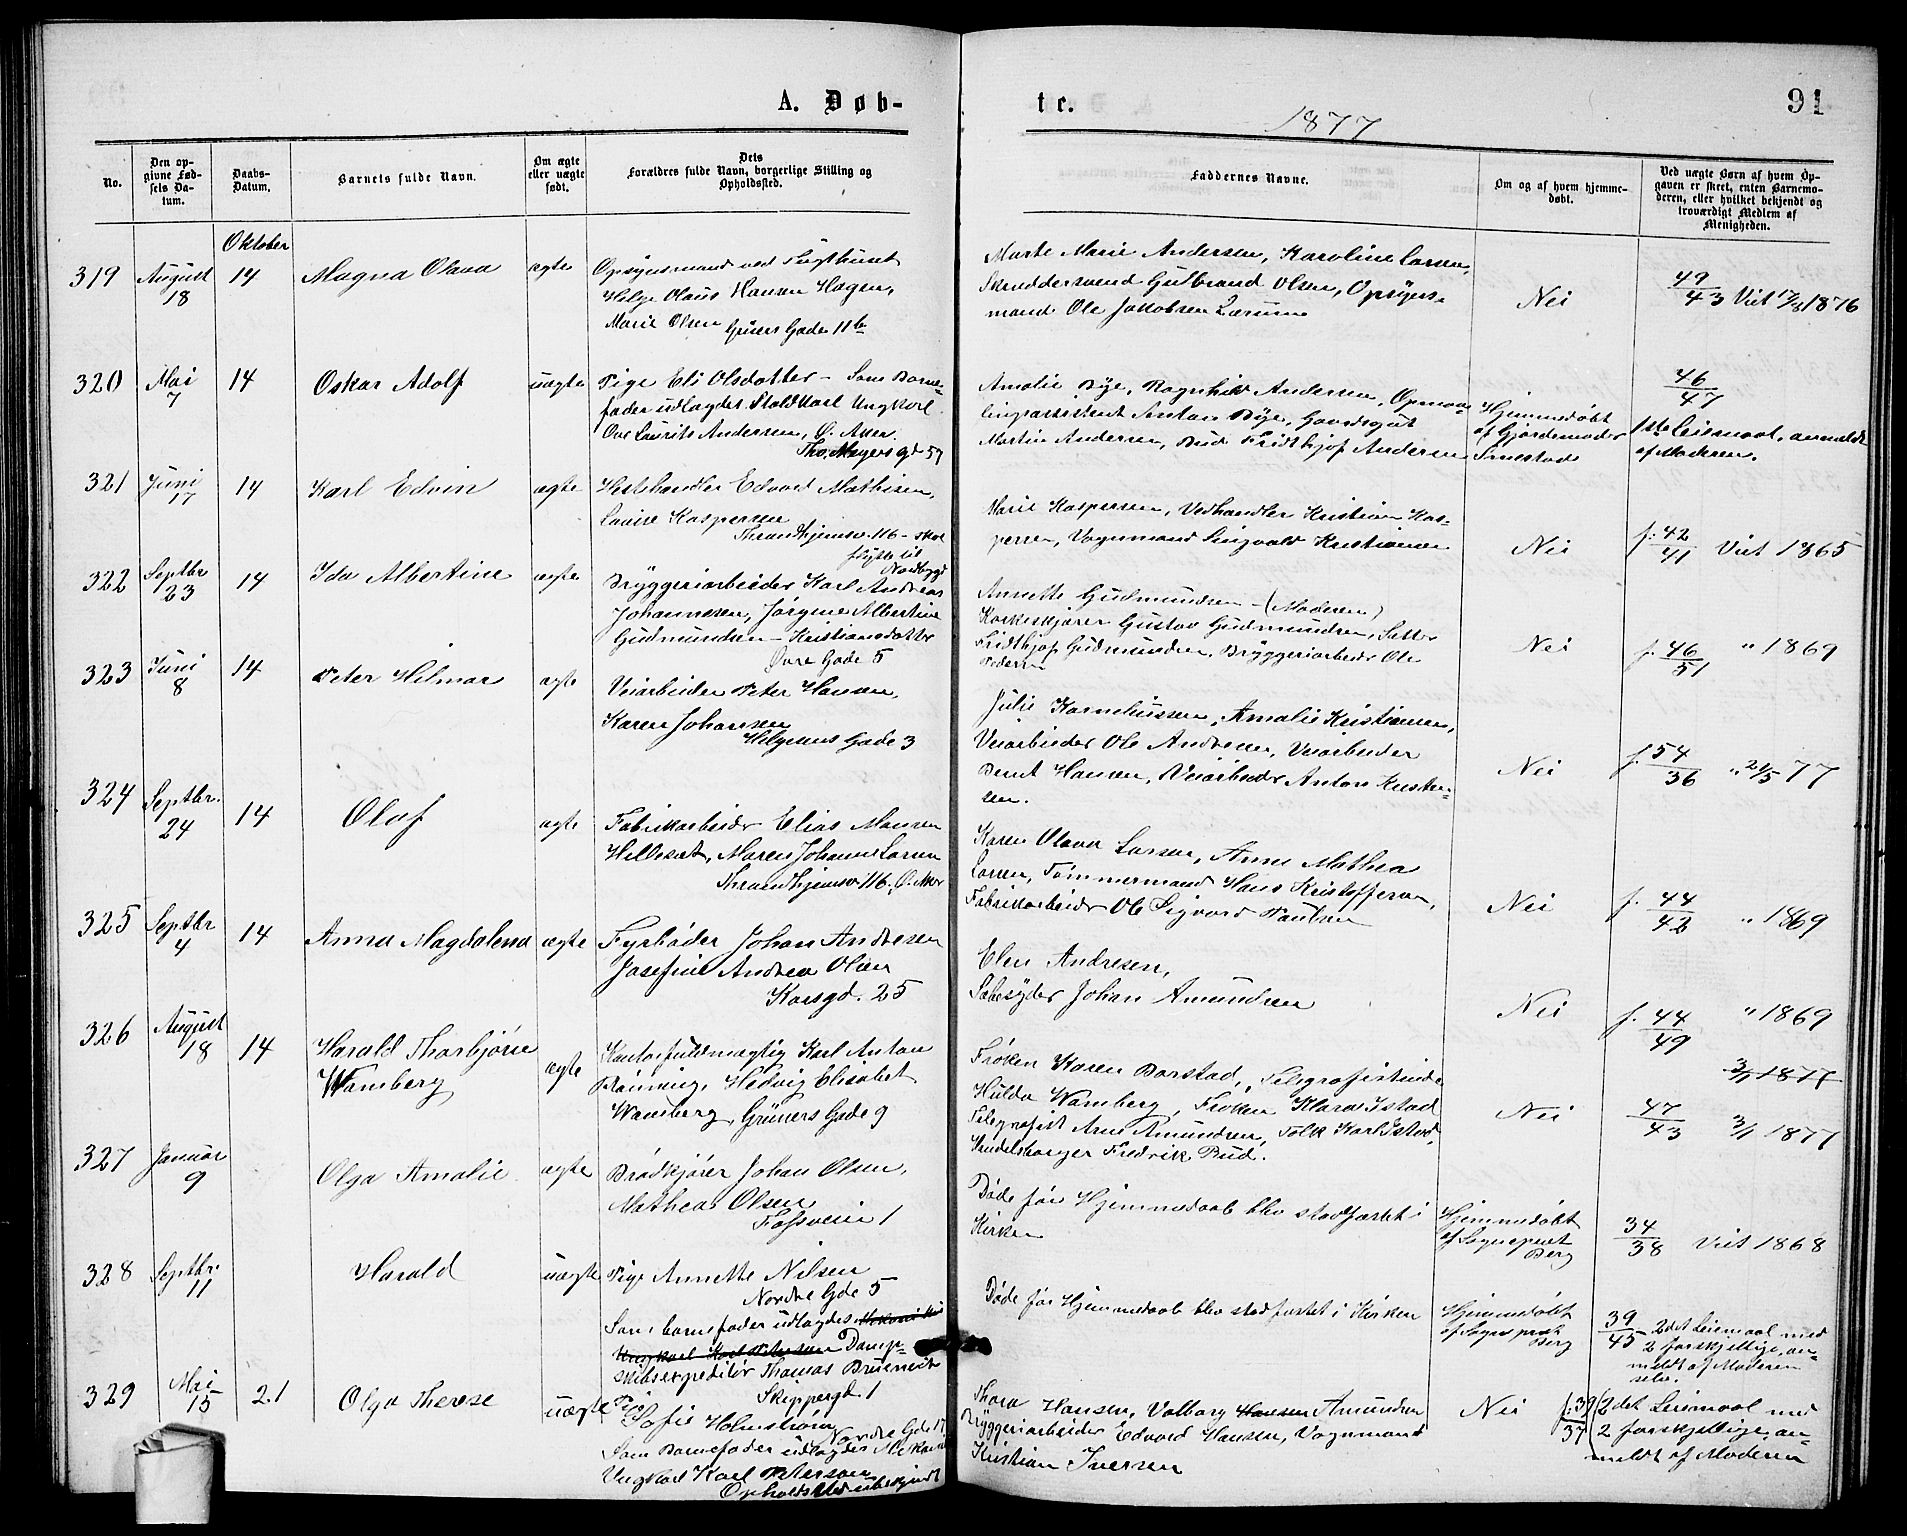 A. Døb-
te.
1877
91
No.
Den op-
givne Fød-
sels Da-
tum.
Daabs-
Datum.
Barnets fulde Navn.
Om ægte
eller uægte
født.
Dets
Forældres fulde Navn, borgerlige Stilling og
Opholdssted.
Faddernes Navne.
Om og af hvem hjemme-
døbt.
Ved uægte Børn af hvem Op-
gaven er skeet, enten Barnemo-
deren, eller hvilket bekjendt og
troværdigt Medlem af
Menigheden.
Oktober
319 August 18 14 Magna Olava ægte Opsynsmand ved Tugthuset
Helge Olaus Hansen Hagen,
Marie Olsen Grüners Gade 11b
Marte Marie Andersen, Karoline Larsen,
Skræddersvend Gulbrand Olsen, Opsyns-
mand Ole Jakobsen Lærum
Nei
49/43 Viet 17/8 1876
320 Mai 7 14 Oskar Adolf uægte Pige Eli Olsdatter - Som Barne-
fader udlagdes Staldkarl Ungkarl
Ove Laurits Andersen, Ø. Aker.
Ths. Meyers gd 57
Amalie Bye, Ragnhild Andersen, Opmaa-
lingsassistent Anton Bye, Gaardsgut
Martin Andersen, Bud Fridthjof Andersen
Hjemmedøbt
af Gjordemoder
Smestad
46/47
1ste Leiemaal, anmeldt
af Moderen.
321 Juni 17 14 Karl Edvin ægte Hestehandler Edvard Mathisen,
Lovise Kaspersen
Thrandhjemsv. 116 - skal
flytte til
Nordbygd
Marie Kaspersen, Vedhandler Kristian Kas-
persen, Vognmand Sigvald Kristiansen
Nei
f. 42/41 Viet 1865
322 Septbr 23 14 Ida Albertine ægte Bryggeriarbeider Karl Andreas
Johannesen, Jørgine Albertine
Gudmundsen - Kristiansdatter
Øvre Gade 5
Annette Gudmundsen - (Moderen)
Karkskjører Gustav Gudmundsen, Sætter
Fridthjof Gudmundsen, Bryggeriarbeider Ole
Pedersen
Nei
f. 46/51 " 1869
323 Juni 8 14 Peter Hilmar ægte Veiarbeider Peter Hansen,
Karen Johansen
Helgesens Gade 3
Julie Korneliussen, Amalie Kristiansen,
Veiarbeider Ole Andresen, Veiarbeider
Bernt Hansen, Veiarbeider Anton Kristian-
sen.
Nei
f. 54/36 " 21/5 77
324 Septbr. 24 14 Olaf ægte Fabrikarbeider Elias Monsen
Hillesæt, Maren Johanne Larsen
Thrandhjemsv. 116. Ø. Aker
Karen Olava Larsen, Anne Mathea
Larsen, Tømmermand Hans Kristoffersen,
Fabrikarbeider Ole Sigvard Paulsen
Nei
f. 44/42 " 1869
325 Septbr 4 14 Anna Magdalena ægte Fyrbøder Johan Andresen
Josefine Andrea Olsen
Korsgd. 25
Elen Andresen,
Sæbesyder Johan Amundsen
Nei
f. 44/49 " 1869
326 August 18 14 Harald Thorbjørn
Wamberg
ægte Kontorfuldmægtig Karl Anton
Rønning, Hedvig Elisabet
Wamberg, Grüners Gade 9
Frøken Karen Borstad, Telegrafistinde
Hulda Wamberg, Frøken Klara Istad
Telegrafist Arne Amundsen, Tolk Karl Istad,
Handelsborger Fredrik Bud.
Nei
3/1 1877
47/43 3/1 1877
327 Januar 9 Olga Amalie ægte Brødkjører Johan Olsen,
Mathea Olsen
Fossveien 1
Døde før Hjemmedaab blev stadfæstet i
Kirken
Hjemmedøbt
af Sognepræst
Berg
34/38 Viet 1868
328 Septbr. 11 Harald uægte Pige Annette Nilsen
Nordre Gde 5
Som barnefader udlagdes
Ungkarl Karl Petersen Damp-
skibsexpeditør Thomas
Skippergd. 1
Døde før Hjemmedaab blev stadfæstet i Kirken
Hjemmedøbt
af Sognepræst
Berg
39/45 2det Leiemaal med
2 forskjellige, an-
meldt af Moderen
selv.
329 Mai 15 21 Olga Therese uægte Pige
Sofie Holmstrøm
Nordre Gde 17
Som Barnefader udlagdes
Ungkarl Karl Peterson
Opholdssted ubekjendt
Thora Hansen, Valborg Hansen Amundsen
Bryggeriarbeider Edvard Hansen, Vognmand
Kristian Iversen
Nei
f. 39/37 2det Leiemaal med
2 forskjellige, an-
meldt af Moderen